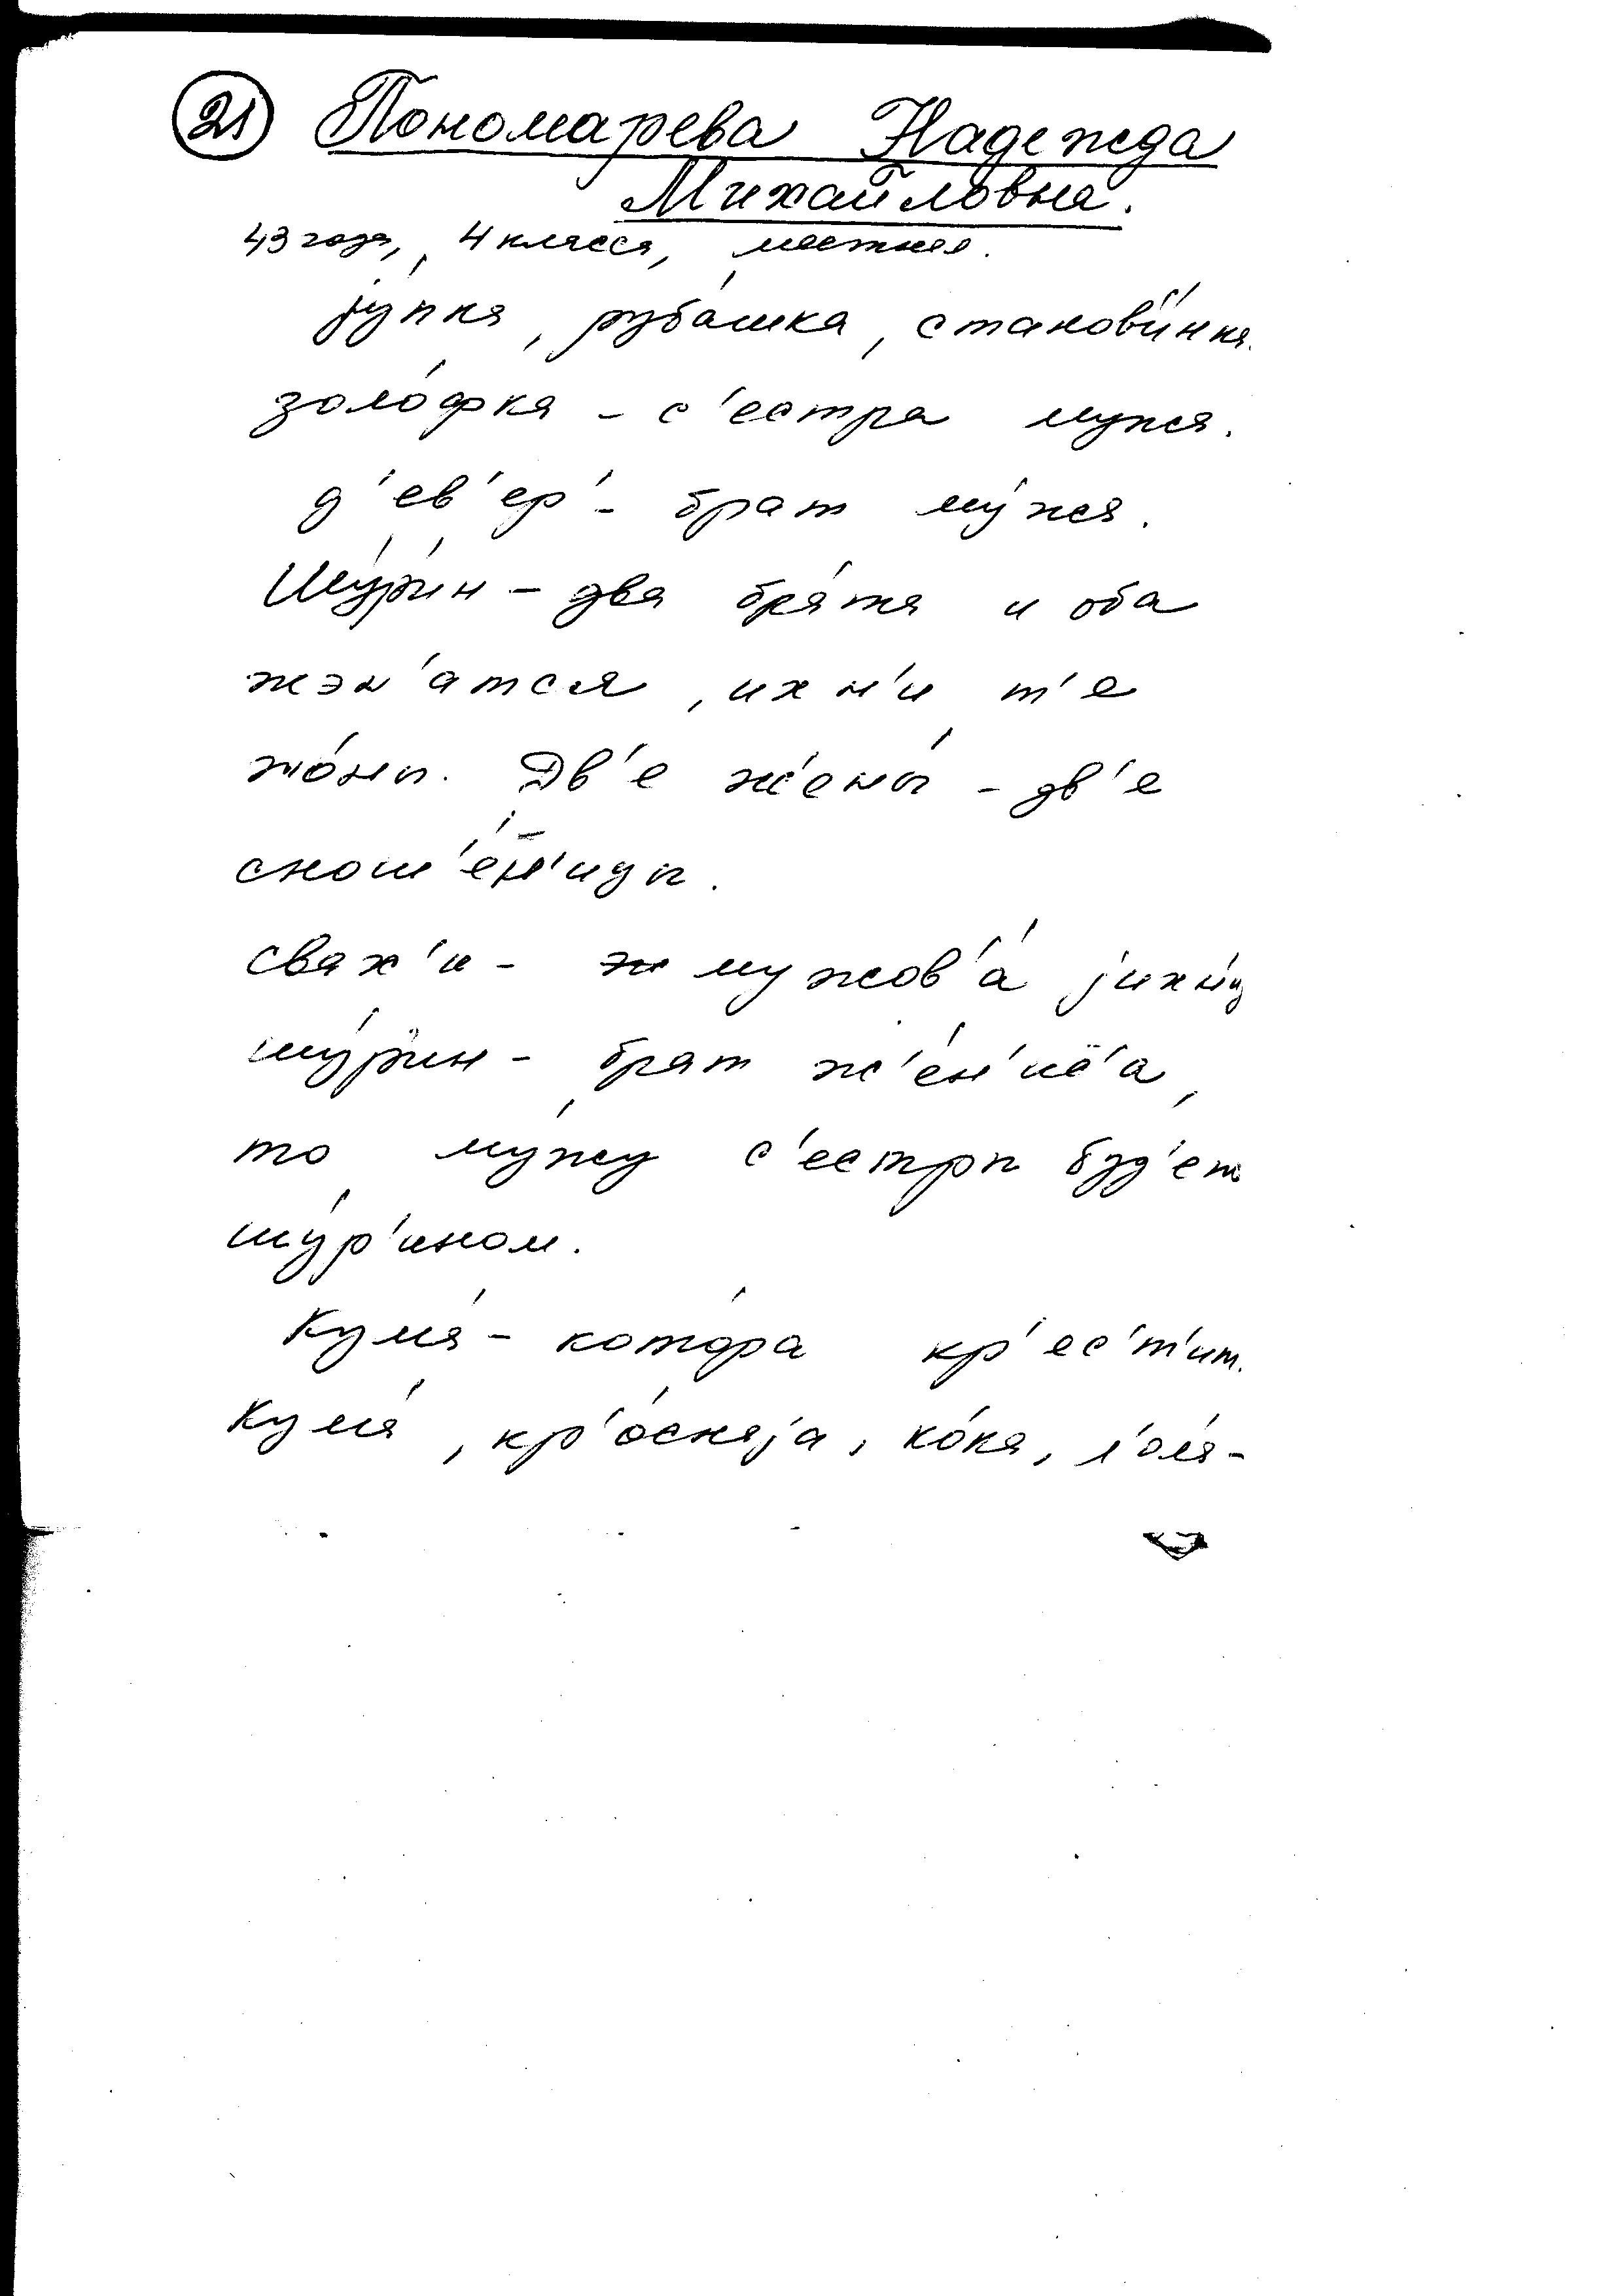 21 Пономарева Надежда
Михайловна.
43 года, 4 класса, местная.
jу́пка, руба́шка, станов'и́нка.
золо́фка – с'естра мужа.
д'ев'ер' – брат му́жа.
Шу́р'ин – два бра́та и оба
жэн'атся, их н'и т'е
жо́ны. Дв'е ж'ены́ – дв'е
снош'е́н'ицы.
свах'и – мужов'а́ jихн'и
шу́р'ин – брат ж'ен'их'а,
то му́жу с'естры буд'ет
шу́р'ином.
Кума́ – кото́ра кр'ес'т'ит.
Кума́, кр'о́снаjа, ко́ка, л'о́л'а –